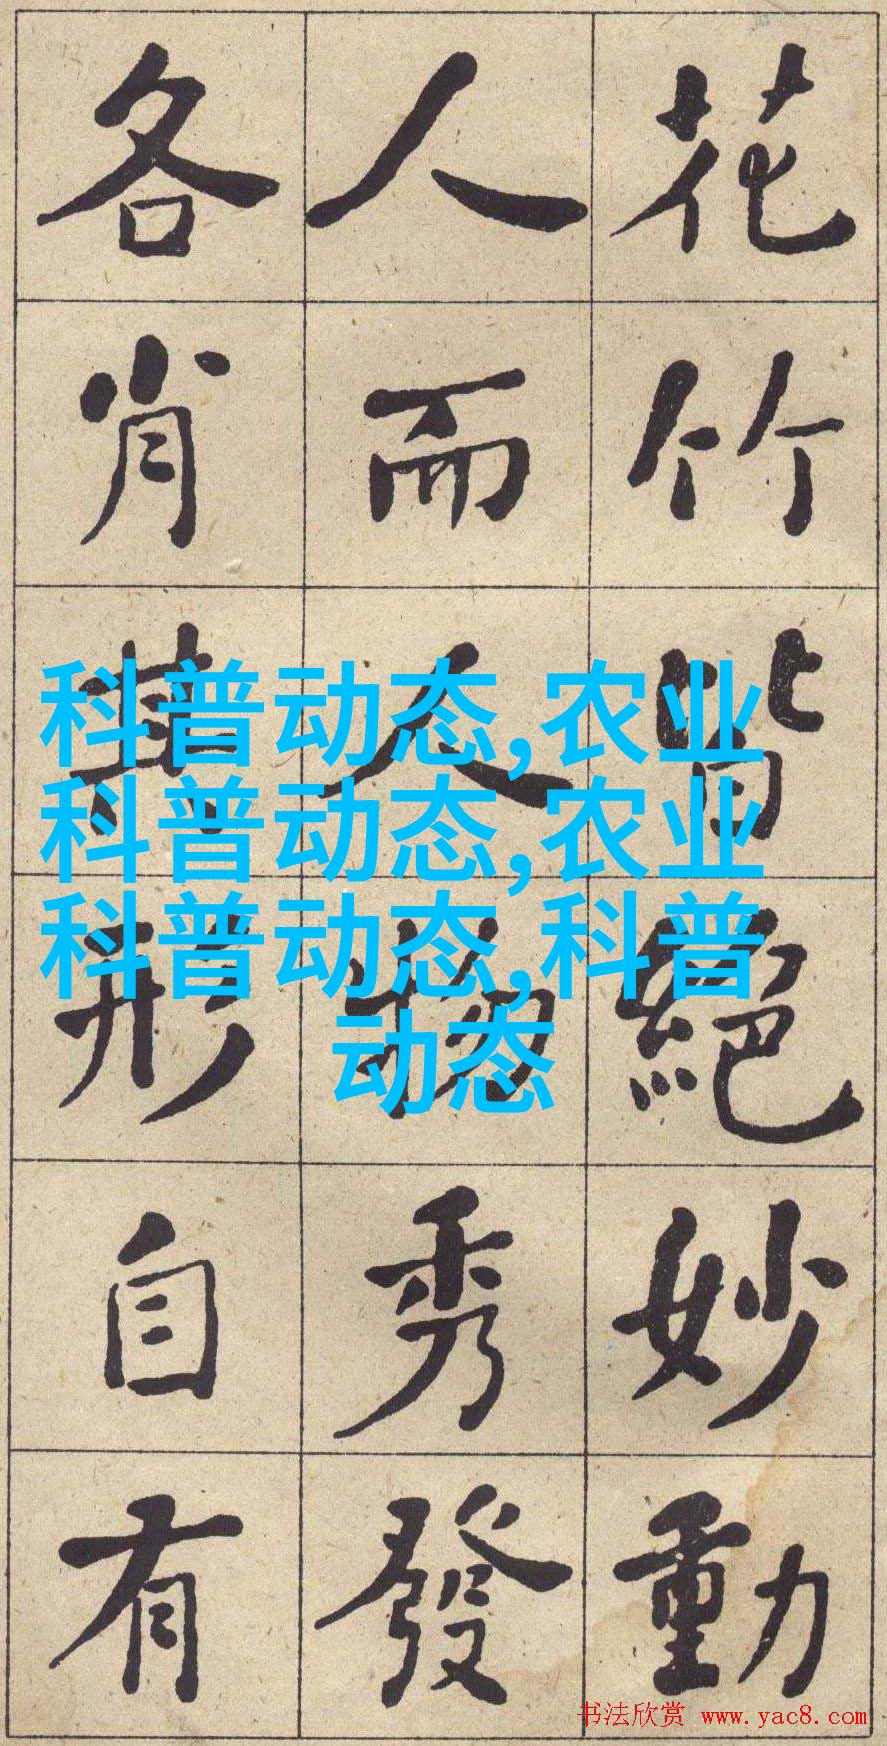 花竹皆絶妙動
人而人物秀發
各肖其形自有
科普动态,农业
科普动态,农业
科普动态,科普
动态
书法欣赏 www.yac8.com